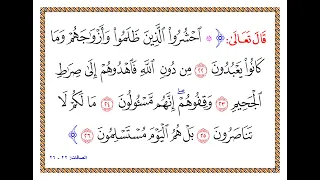 قَالَ تَعَالَىٰ: ﴿ ۞ ٱحْشُرُوا۟ ٱلَّذِينَ ظَلَمُوا۟ وَأَزْوَٰجَهُمْ وَمَا
كَانُوا۟ يَعْبُدُونَ ٢٢ مِن دُونِ ٱللَّهِ فَٱهْدُوهُمْ إِلَىٰ صِرَٰطِ
ٱلْجَحِيمِ ٢٣ وَقِفُوهُمْ ۖ إِنَّهُم مَّسْـُٔولُونَ ٢٤ مَا لَكُمْ لَا
تَنَاصَرُونَ ٢٥ بَلْ هُمُ ٱلْيَوْمَ مُسْتَسْلِمُونَ ٢٦ ﴾
الصافات: ٢٢ - ٢٦